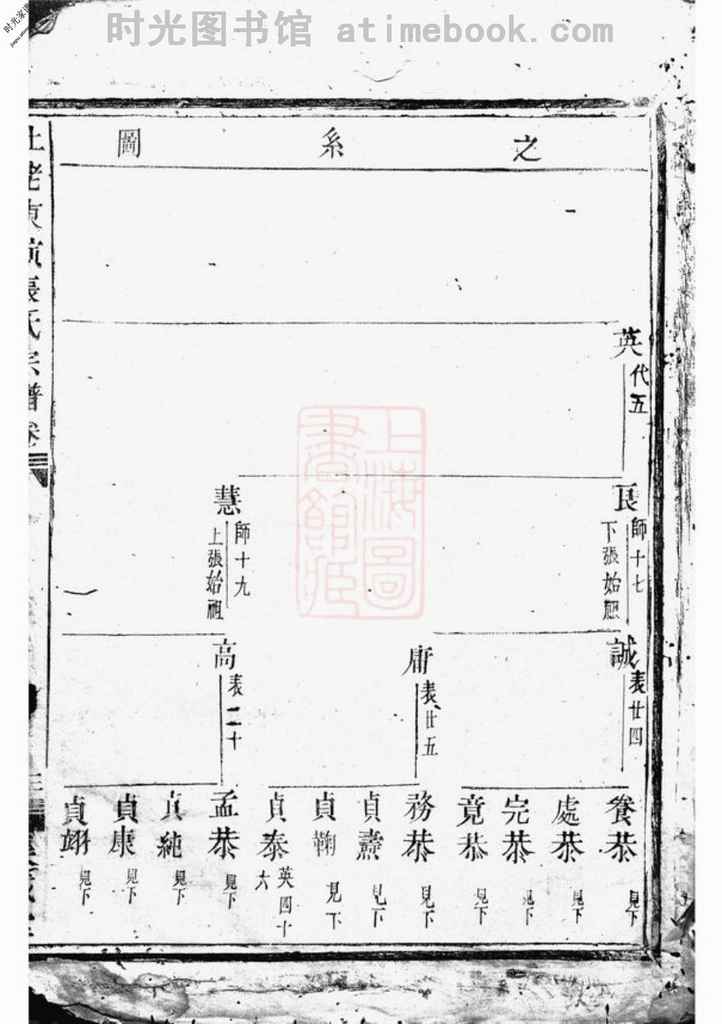 时光图书馆 atimebook.com
之系圖
英
代五
良
師十七
下張始祖
慧
師十九
上張始祖
誠
表廿四
庸
表廿五
高
表二十
養恭
見下
處恭
見下
完恭
見下
竟恭
見下
務恭
見下
貞燾
見下
貞鞠
見下
貞泰
英四十六
孟恭
見下
貞純
見下
貞康
見下
貞翊
見下
張氏宗譜卷
上海圖書館藏